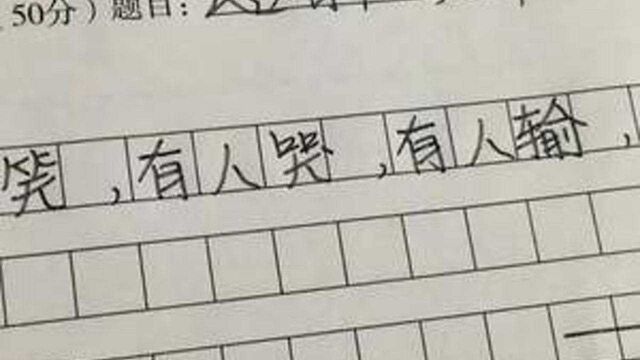 50分）题目：
笑，有人哭，有人输，